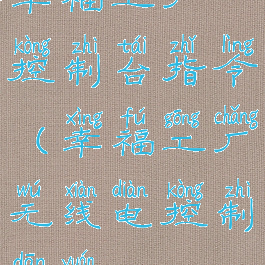 kòng zhì tái zhǐ lìng
控制台指令
xìng fú gōng chǎng
(幸福工厂
wú xiàn diàn kòng zhì
无线电控制